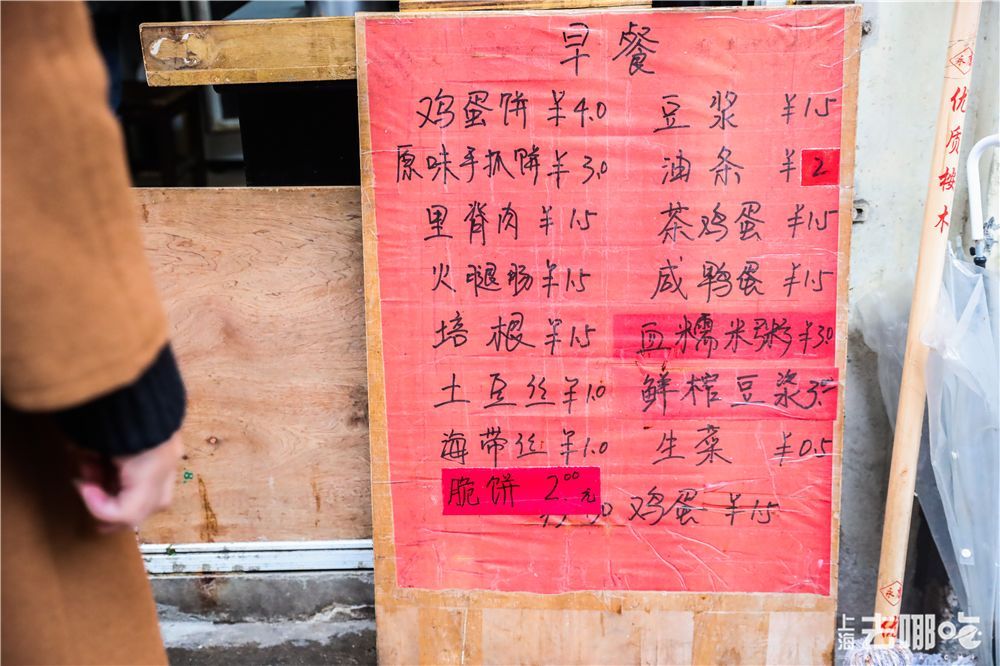 早餐
鸡蛋饼 ¥4.0
原味手抓饼 ¥3.0
里脊肉 ¥1.5
火腿肠 ¥1.5
培根 ¥1.5
土豆丝 ¥1.0
海带丝 ¥1.0
脆饼 2.00元
豆浆 ¥1.5
油条 ¥2
茶鸡蛋 ¥1.5
咸鸭蛋 ¥1.5
血糯米粥 ¥3.0
鲜榨豆浆 3.00
生菜 ¥0.5
鸡蛋 ¥1.5
优质桉木
上海去哪吃